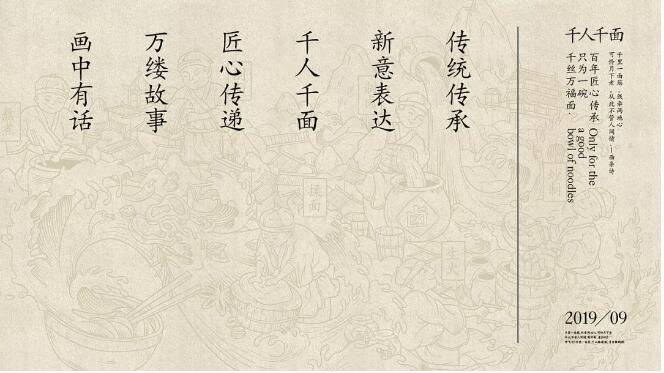 传统传承
新意表达
千人千面
匠心传递
万缕故事
画中有话
千人千面
千里一面筋，线牵两地心
可怜月下老，从此不管人间情。—面条诗
百年匠心 传承
只为一碗
千丝万福面.
Only for the
a good
bowl of noodles
揉面
生火
2019/09